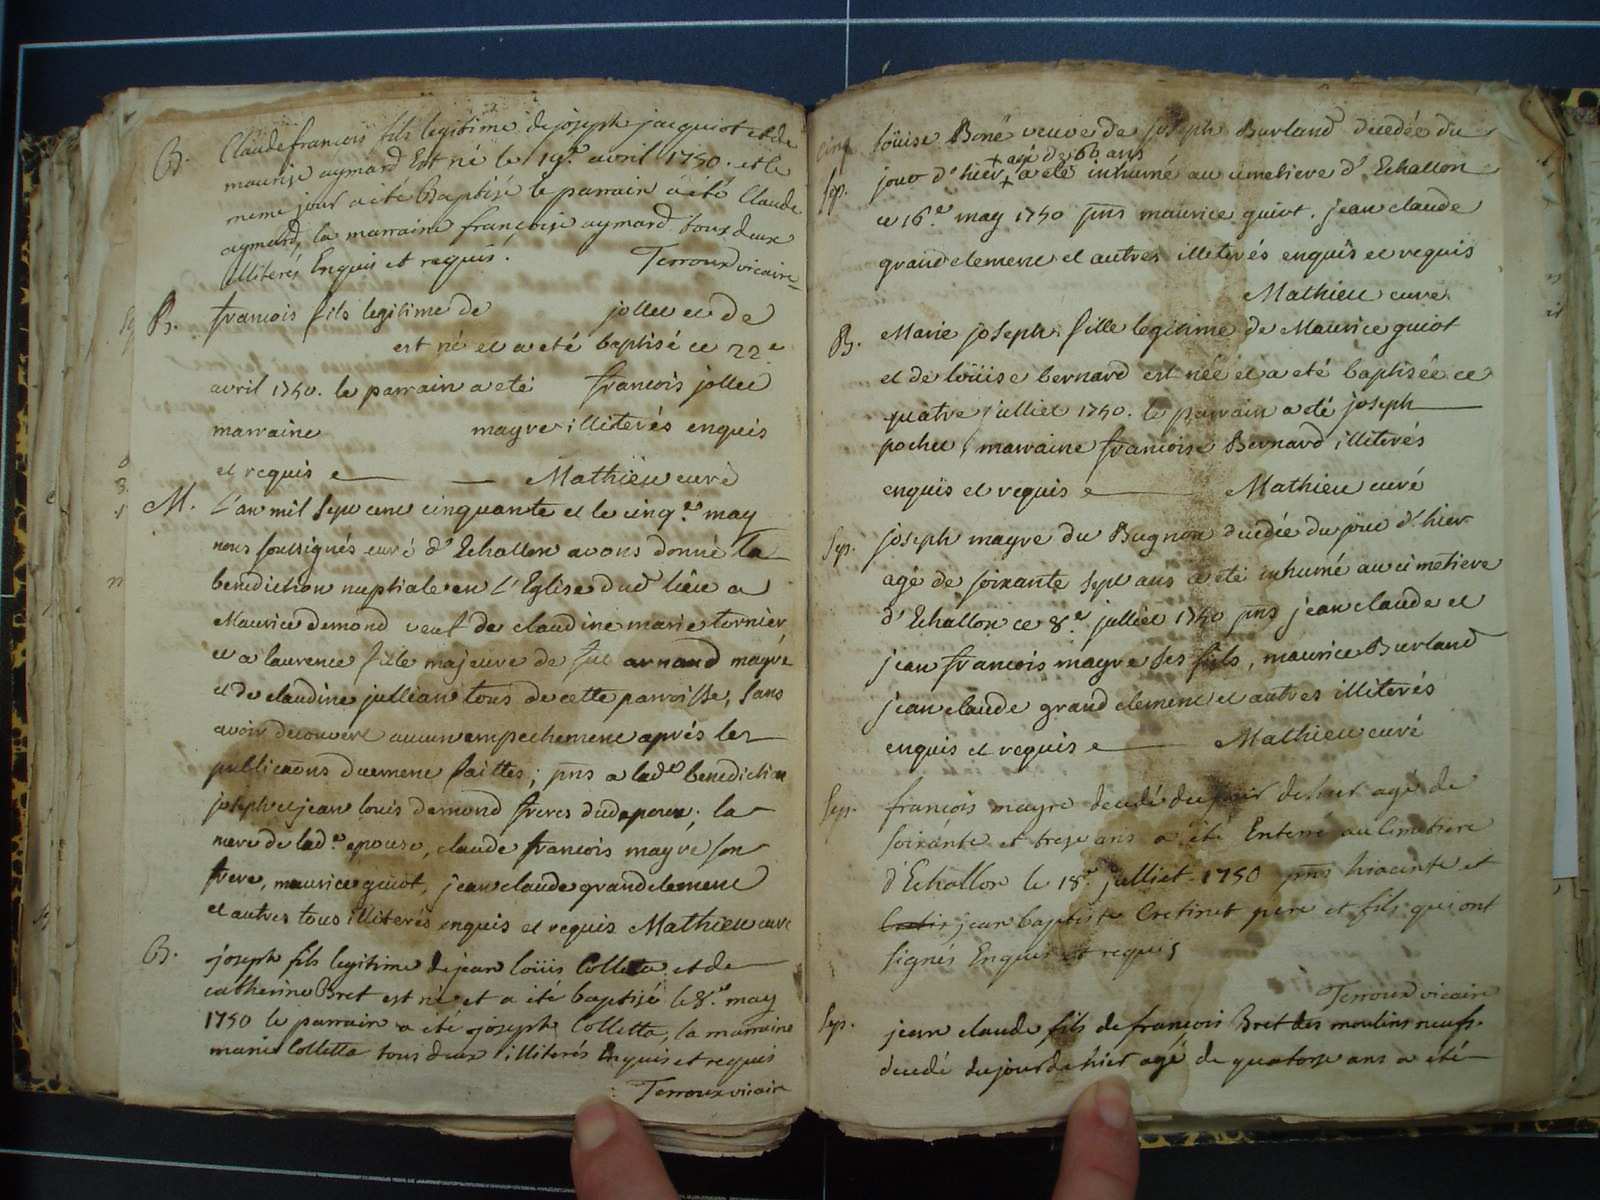 B. Claude francois fils legitime de joseph jacquiot et de
maurise aymard Est né le 19.e avril 1750. et le
meme jour a été Baptisé le parrain a été Claude
aymard, la marraine françoise aymard tous deux
illiterés Enquis et requis. Terroux vicaire
B. francois fils legitime de jollet et de
est né et a eté baptisé ce 22.e
avril 1750. le parrain a eté francois jollet
marraine mayre illiterés enquis
et requis Mathieu curé
M. L'an mil sept cent cinquante et le cinq.e may
nous soussignés curé d'Echallon avons donné la
benediction nuptiale en L'Eglise dud lieu a
Maurice demond veuf de claudine marie tornier
et a laurence fille majeure de fut arnaud mayre
et de claudine jullian tous de cette parroisse, sans
avoir decouvert aucun empechement aprés les
publications duement faittes; pns a lad.e benediction
joseph et jean louis demond freres dud epoux; la
mere de lad.e epouse, claude francois mayre son
frere, maurice guiot, jean claude grandclement
et autres tous illiterés enquis et requis Mathieu curé
B. joseph fils legitime de jean loüis Colletta et de
catherine Bret est né et a été baptisé le 8.e may
1750 le parrain a été joseph Colletta, la marraine
marie Colletta tous deux illiterés Enquis et requis
Terroux vicair
loüise Boné veuve de joseph Burland decedée du
agé de 66 ans
Sep. jour d'hier a eté inhumé au cimetiere d'Echallon
ce 16.e may 1750 pns maurice guiot. jean claude
grandclement et autres illiterés enquis et requis
Mathieu curé
B. Marie joseph fille legitime de Maurice guiot
et de loüise bernard est née et a eté baptisée ce
quatre juilliet 1750. le parrain a eté joseph
pochet, marraine francoise Bernard illiterés
enquis et requis Mathieu curé
Sep. joseph mayre du Bugnon decedée du jour d'hier
agé de soixante sept ans a eté inhumé au cimetiere
d'Echallon ce 8.e julliet 1750 pns jean claude et
jean francois mayre ses fils, maurice Burland
jean claude grand clement et autres illiterés
enquis et requis Mathieu curé
Sep. françois mayre decedé du jour de hier agé de
soixante et treze ans a été Enterré au Cimetiere
d'Echallon le 18.e julliet 1750 pns hiacinte et
jean baptiste Cretinet pere et fils qui ont
signés Enquis et requis
Terroux vicaire
Sep. jean claude fils de francois Bret des moulins neufs.
decedé du jour de hier agé de quatorze ans a été